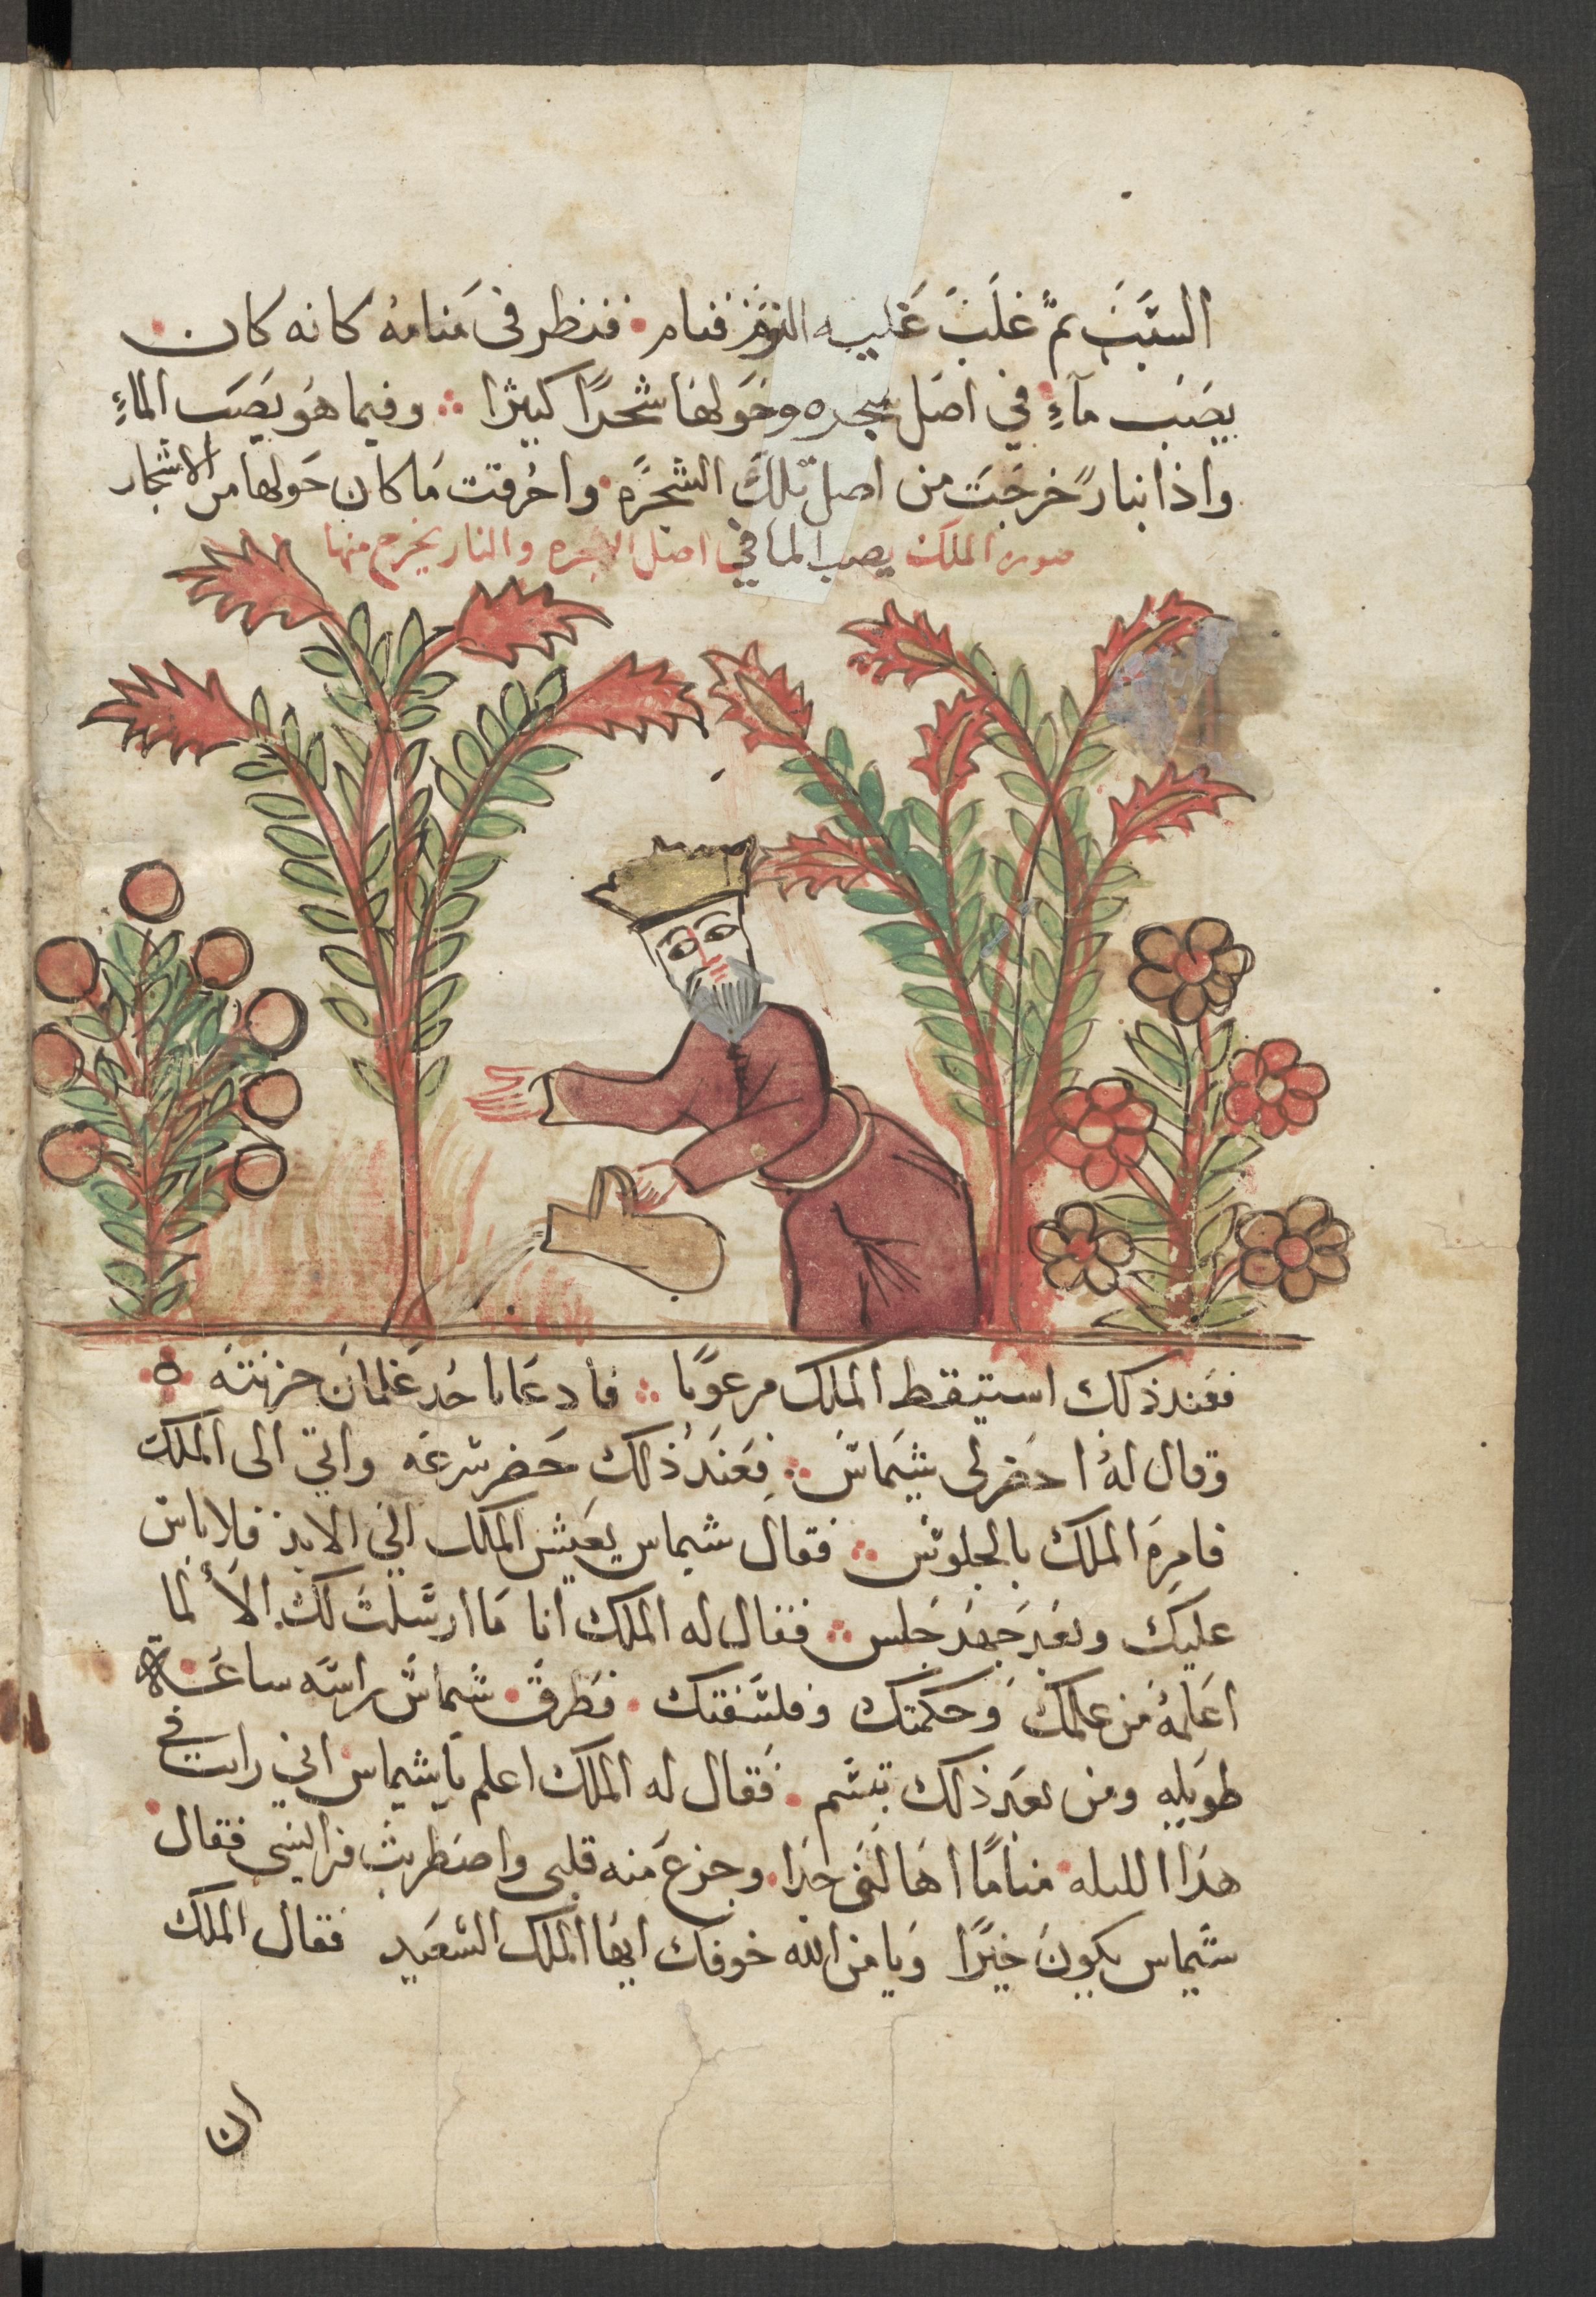 السبب ثم غلب عليه النوم فنام فنظر في منامه كانه كان
يصب مآء في اصل شجره وحولها شجرًا كثيرًا وفيما هو يصب المآء
واذا بنار خرجت من اصل تلك الشجره واحرقت ما كان حولها من الاشجار
صورة الملك يصب الما في اصل الشجره والنار يخرج منها
فعند ذلك استيقظ الملك مرعوبًا فادعا باحد غلمان خزنته
وقال له احضر لي شيماس فعند ذلك حضر سرعه واتي الى الملك
فامره الملك بالجلوس فقال شيماس يعيش الملك الي الابد فلا باس
عليك وبعد جهد جلس فقال له الملك انا ما ارسلت لك الا لما
اعلمه من علمك وحكمتك وفلسفتك فطرق شماس راسه ساعة
طويله ومن بعد ذلك تبسم فقال له الملك اعلم يا شيماس اني رايت في
هذا الليله منامًا اهالني جدا وجزع منه قلبي واضطربت فرايسي فقال
شيماس يكون خيرًا ويامن الله خوفك ايها الملك السعيد فقال الملك
ان